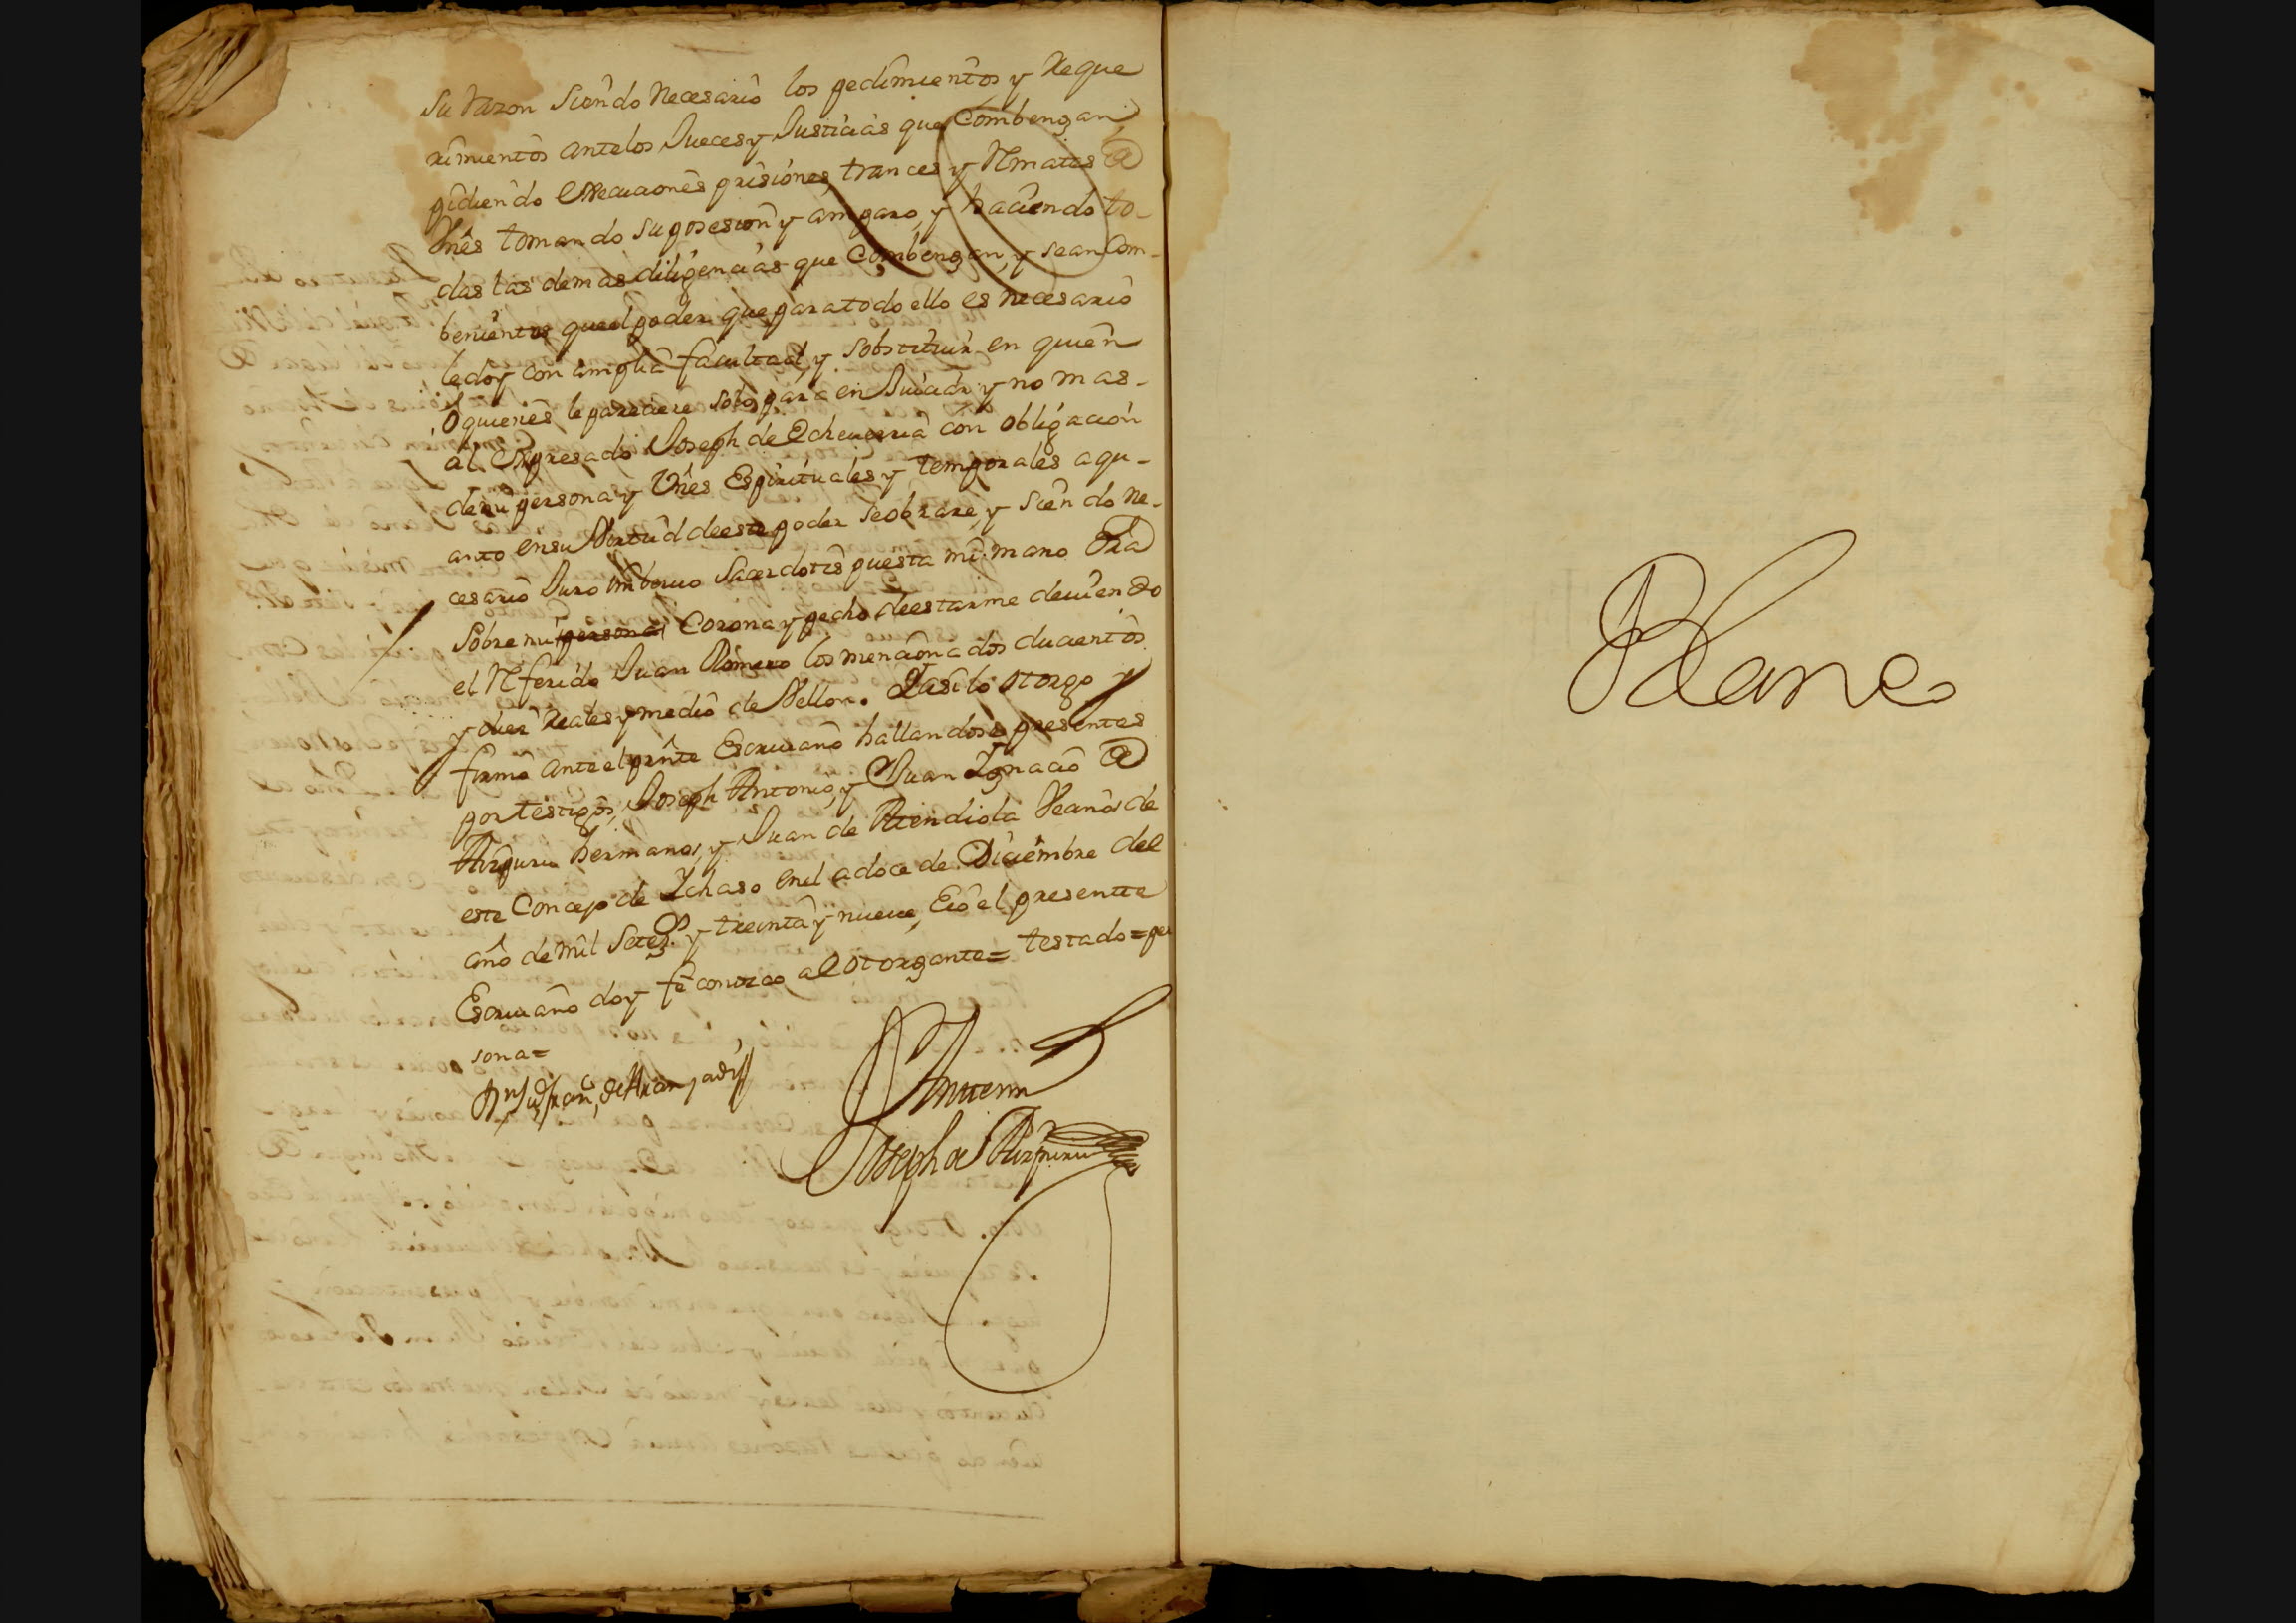 su razon siendo necesario los pedimientos y reque
rimientos antelos Jueces y Justicias que Combengan
pidiendo execuciones prisiones trances y Rmates @
Vnês tomando su posesion y amparo, y haciendo to-
das las demas diligencias que Combengan, y sean Com-
benientes que el poder que para todo ello es necesario
le doy con amplia facultad, y sobstituir en quien
o quienes le pareciere solo para en Juiciar y no mas-
al Expresado Joseph de Echeuerria con obligacion
de mi persona y Vnês Espirituales y temporales a qu-
anto en su Virtud de este poder se obrare, y siendo ne-
cesario Juro In beruo Sacerdotis puesta mi mano dra
sobre mi persona Corona y pecho de estarme deuiendo
el Rferido Juan Romero los mencionados ducientos
y diez reales y medio de Vellon. Y asi lo otorgo y
firmo ante el preste Escriuano hallandose presentes
por testigos, Joseph Antonio, y Juan Ygnacio @
Aizpuru hermanos, y Juan de Mendiola Veanos de
este Concejo de Ychaso en el a doce de Diciembre del
año de mil setez.s y treinta y nueue, E io el presente
Escriuano doy fe conozco al otorgante= testado=per
sona=
Antemi
Joseph de Aizpuru
Blanco